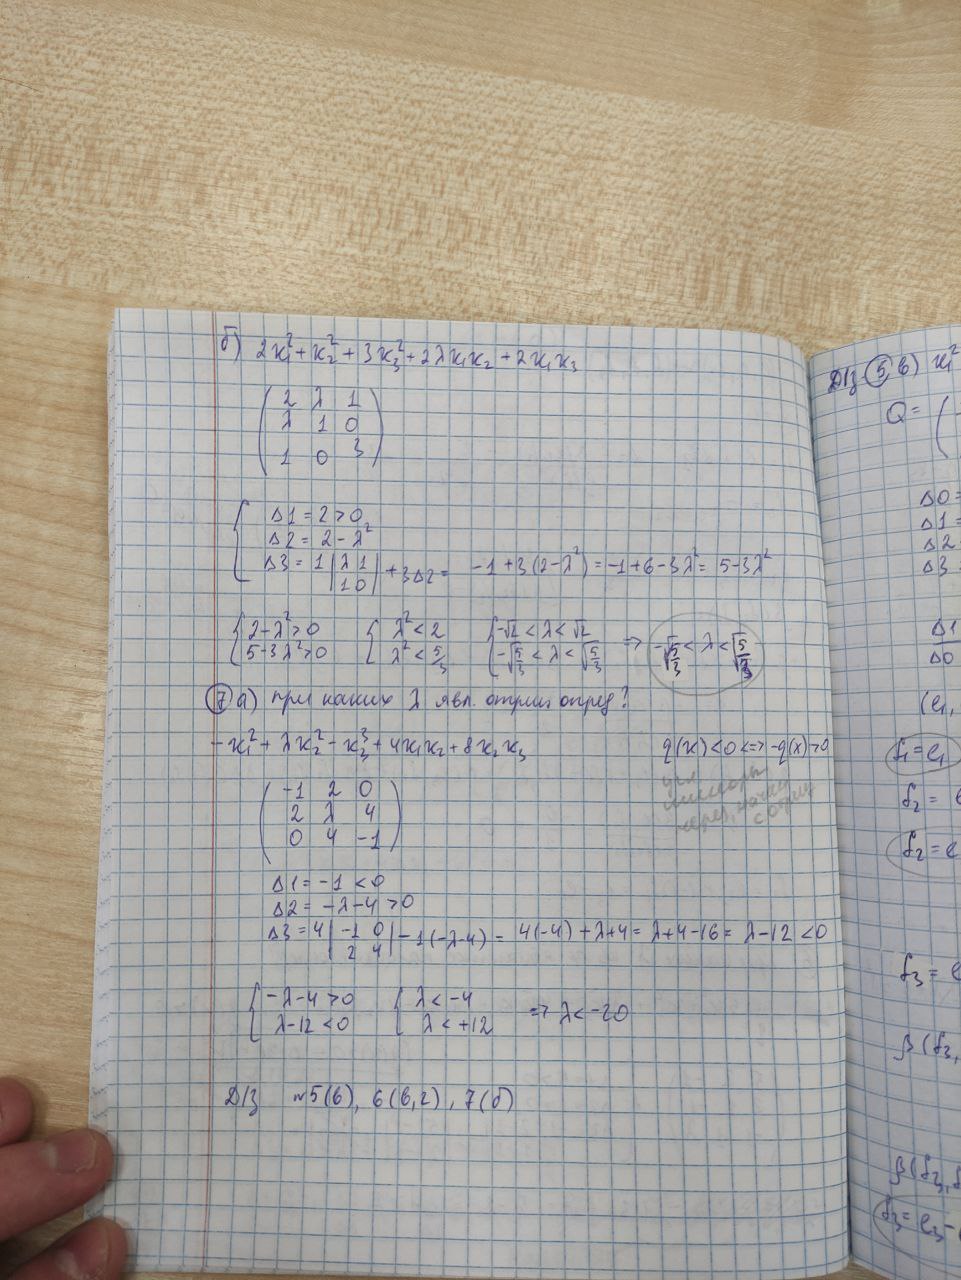 б) 2x₁² + x₂² + 3x₃² + 2λx₁x₂ + 2x₁x₃
( 2 λ 1
λ 1 0
1 0 3 )
{ Δ1 = 2 > 0
Δ2 = 2 - λ²
Δ3 = 1 | λ 1
1 0 | + 3Δ2 = -1 + 3(2-λ²) = -1 + 6 - 3λ² = 5 - 3λ²
{ 2-λ² > 0 { λ² < 2 { -√2 < λ < √2 => -√5/3 < λ < √5/3
5-3λ² > 0 λ² < 5/3 -√5/3 < λ < √5/3
7 а) при каких λ явл. отриц опред?
-x₁² + λx₂² - x₃³ + 4x₁x₂ + 8x₂x₃ q(x) < 0 <=> -q(x) > 0
( -1 2 0
2 λ 4
0 4 -1 )
Δ1 = -1 < 0
Δ2 = -λ-4 > 0
Δ3 = 4 | -1 0
2 4 | - 1(-λ-4) = 4(-4) + λ + 4 = λ + 4 - 16 = λ - 12 < 0
{ -λ-4 > 0 { λ < -4 => λ < -20
λ-12 < 0 λ < +12
Д/З №5(в), 6(в,г), 7(б)
Д/З 5 в) x₁²
Q = (
Δ0 =
Δ1 =
Δ2 =
Δ3 =
Δ1
Δ0
(e₁,
f₁ = e₁
f₂ =
f₂ = e
f₃ = e
β(f₃,
β(f₃, f
f₃ = e₃ -